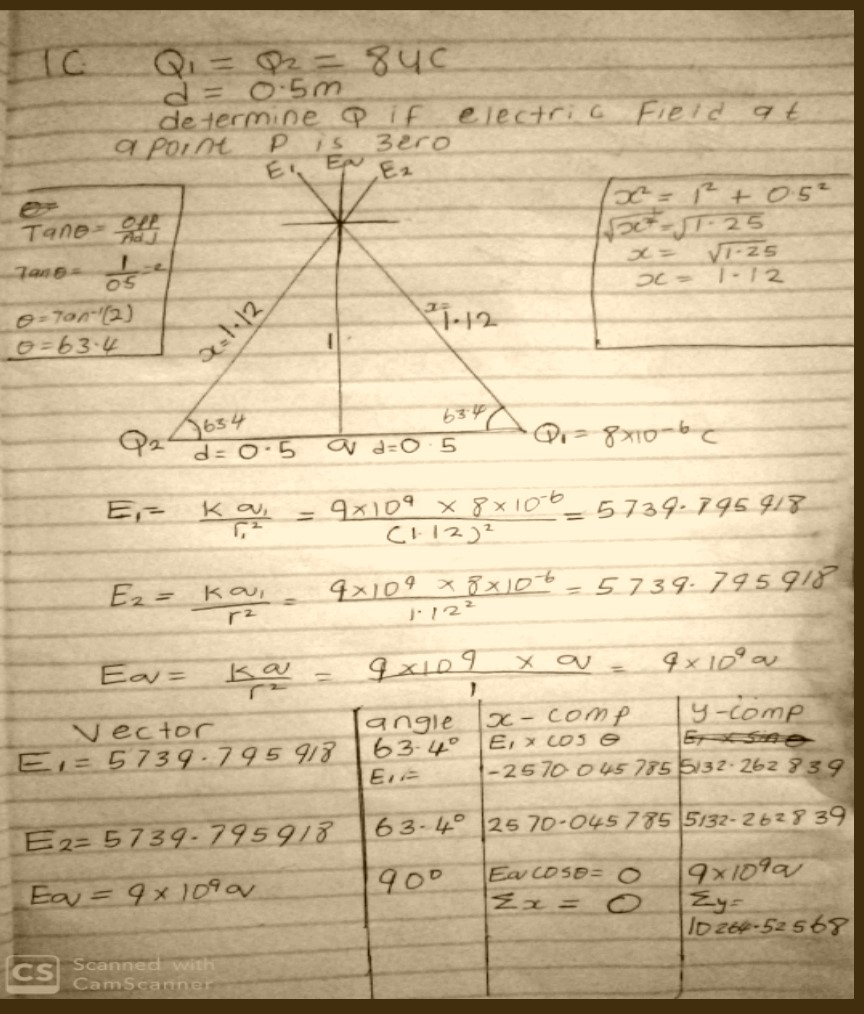 1C. Q1 = Q2 = 8uC
d = 0.5m
determine Q if electric Field at
a point P is zero
E1 Eq E2
θ=
Tanθ = opp/Adj
Tanθ = 1/05 = 2
θ = Tan⁻¹(2)
θ = 63.4
x² = 1² + 0.5²
√x² = √1.25
x = √1.25
x = 1.12
x = 1.12
1
x=
1.12
63.4
63.4
Q2
d = 0.5 q d=0.5
Q1 = 8x10⁻⁶ C
E1 = kq1/r1² = 9x10⁹ x 8x10⁻⁶/(1.12)² = 5739.795918
E2 = kq1/r² = 9x10⁹ x 8x10⁻⁶/1.12² = 5739.795918
Eq = kq/r² = 9x10⁹ x q/1 = 9x10⁹q
Vector angle x-comp y-comp
E1 = 5739.795918 63.4° E1 x cos θ E1 x sin θ
E1 = -2570.045785 5132.262839
E2 = 5739.795918 63.4° 2570.045785 5132.262839
Eq = 9x10⁹q 90° Eq cosθ = 0 9x10⁹q
Σx = 0 Σy =
10264.52568
CS Scanned with
CamScanner